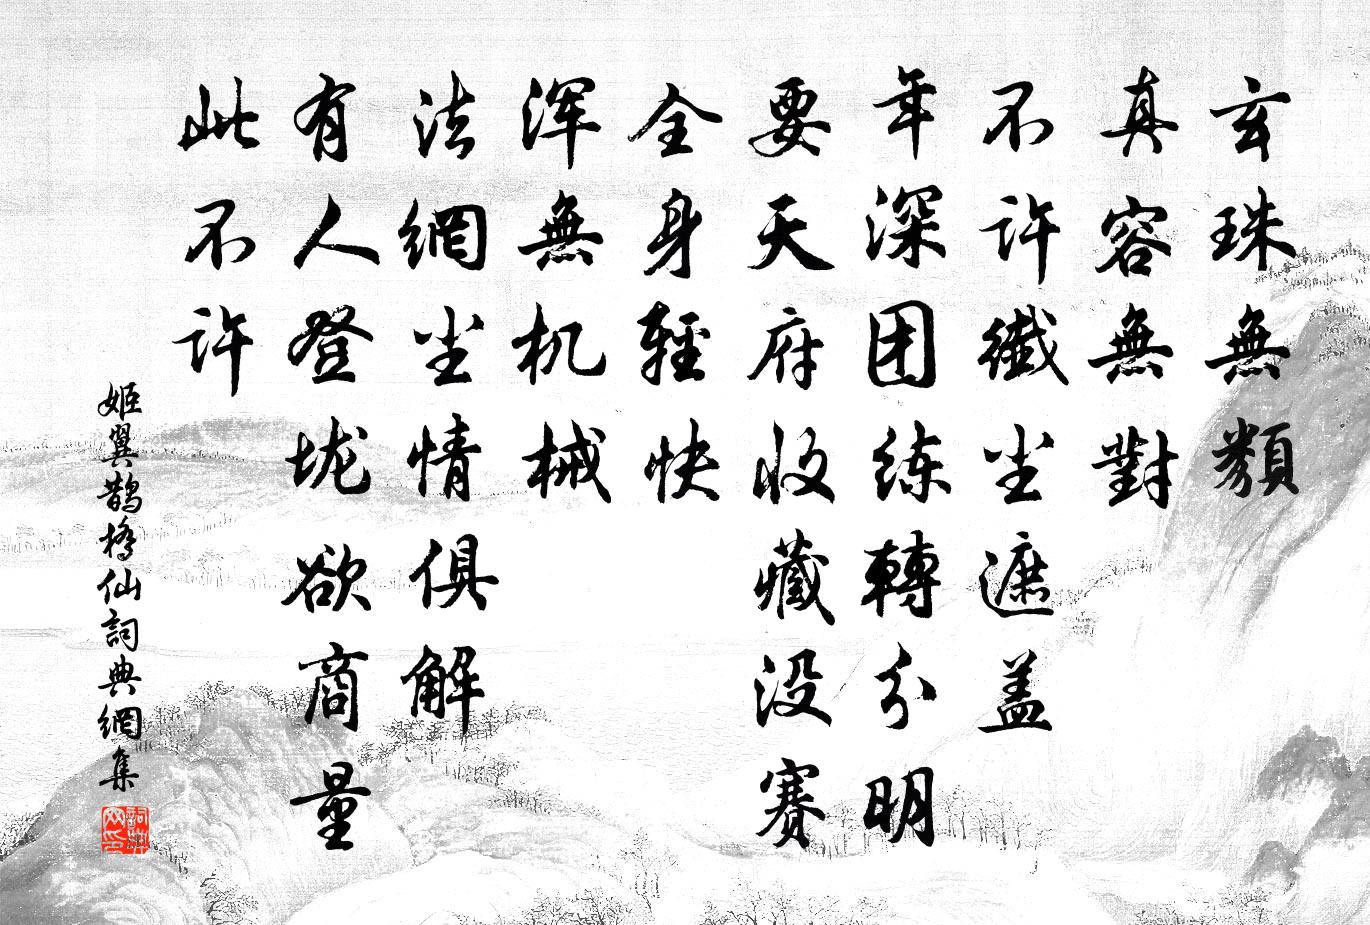 玄珠無纇
真容無對
不许纖尘遮盖
年深团练轉分明
要天府收藏没赛
全身輕快
浑無机械
法網尘情俱解
有人登垅欲商量
此不许
姬翼鹊橋仙詞典網集